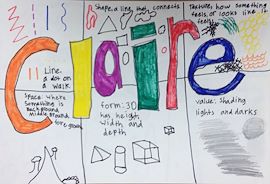 Shape: a line that connects
Texture: how something
feels or looks like it
feels
Claire
Line:
a dot on
a walk
Space: where
something is
Background
Middleground
foreground
form: 3D
has height,
width and
depth
value: shading
lights and darks